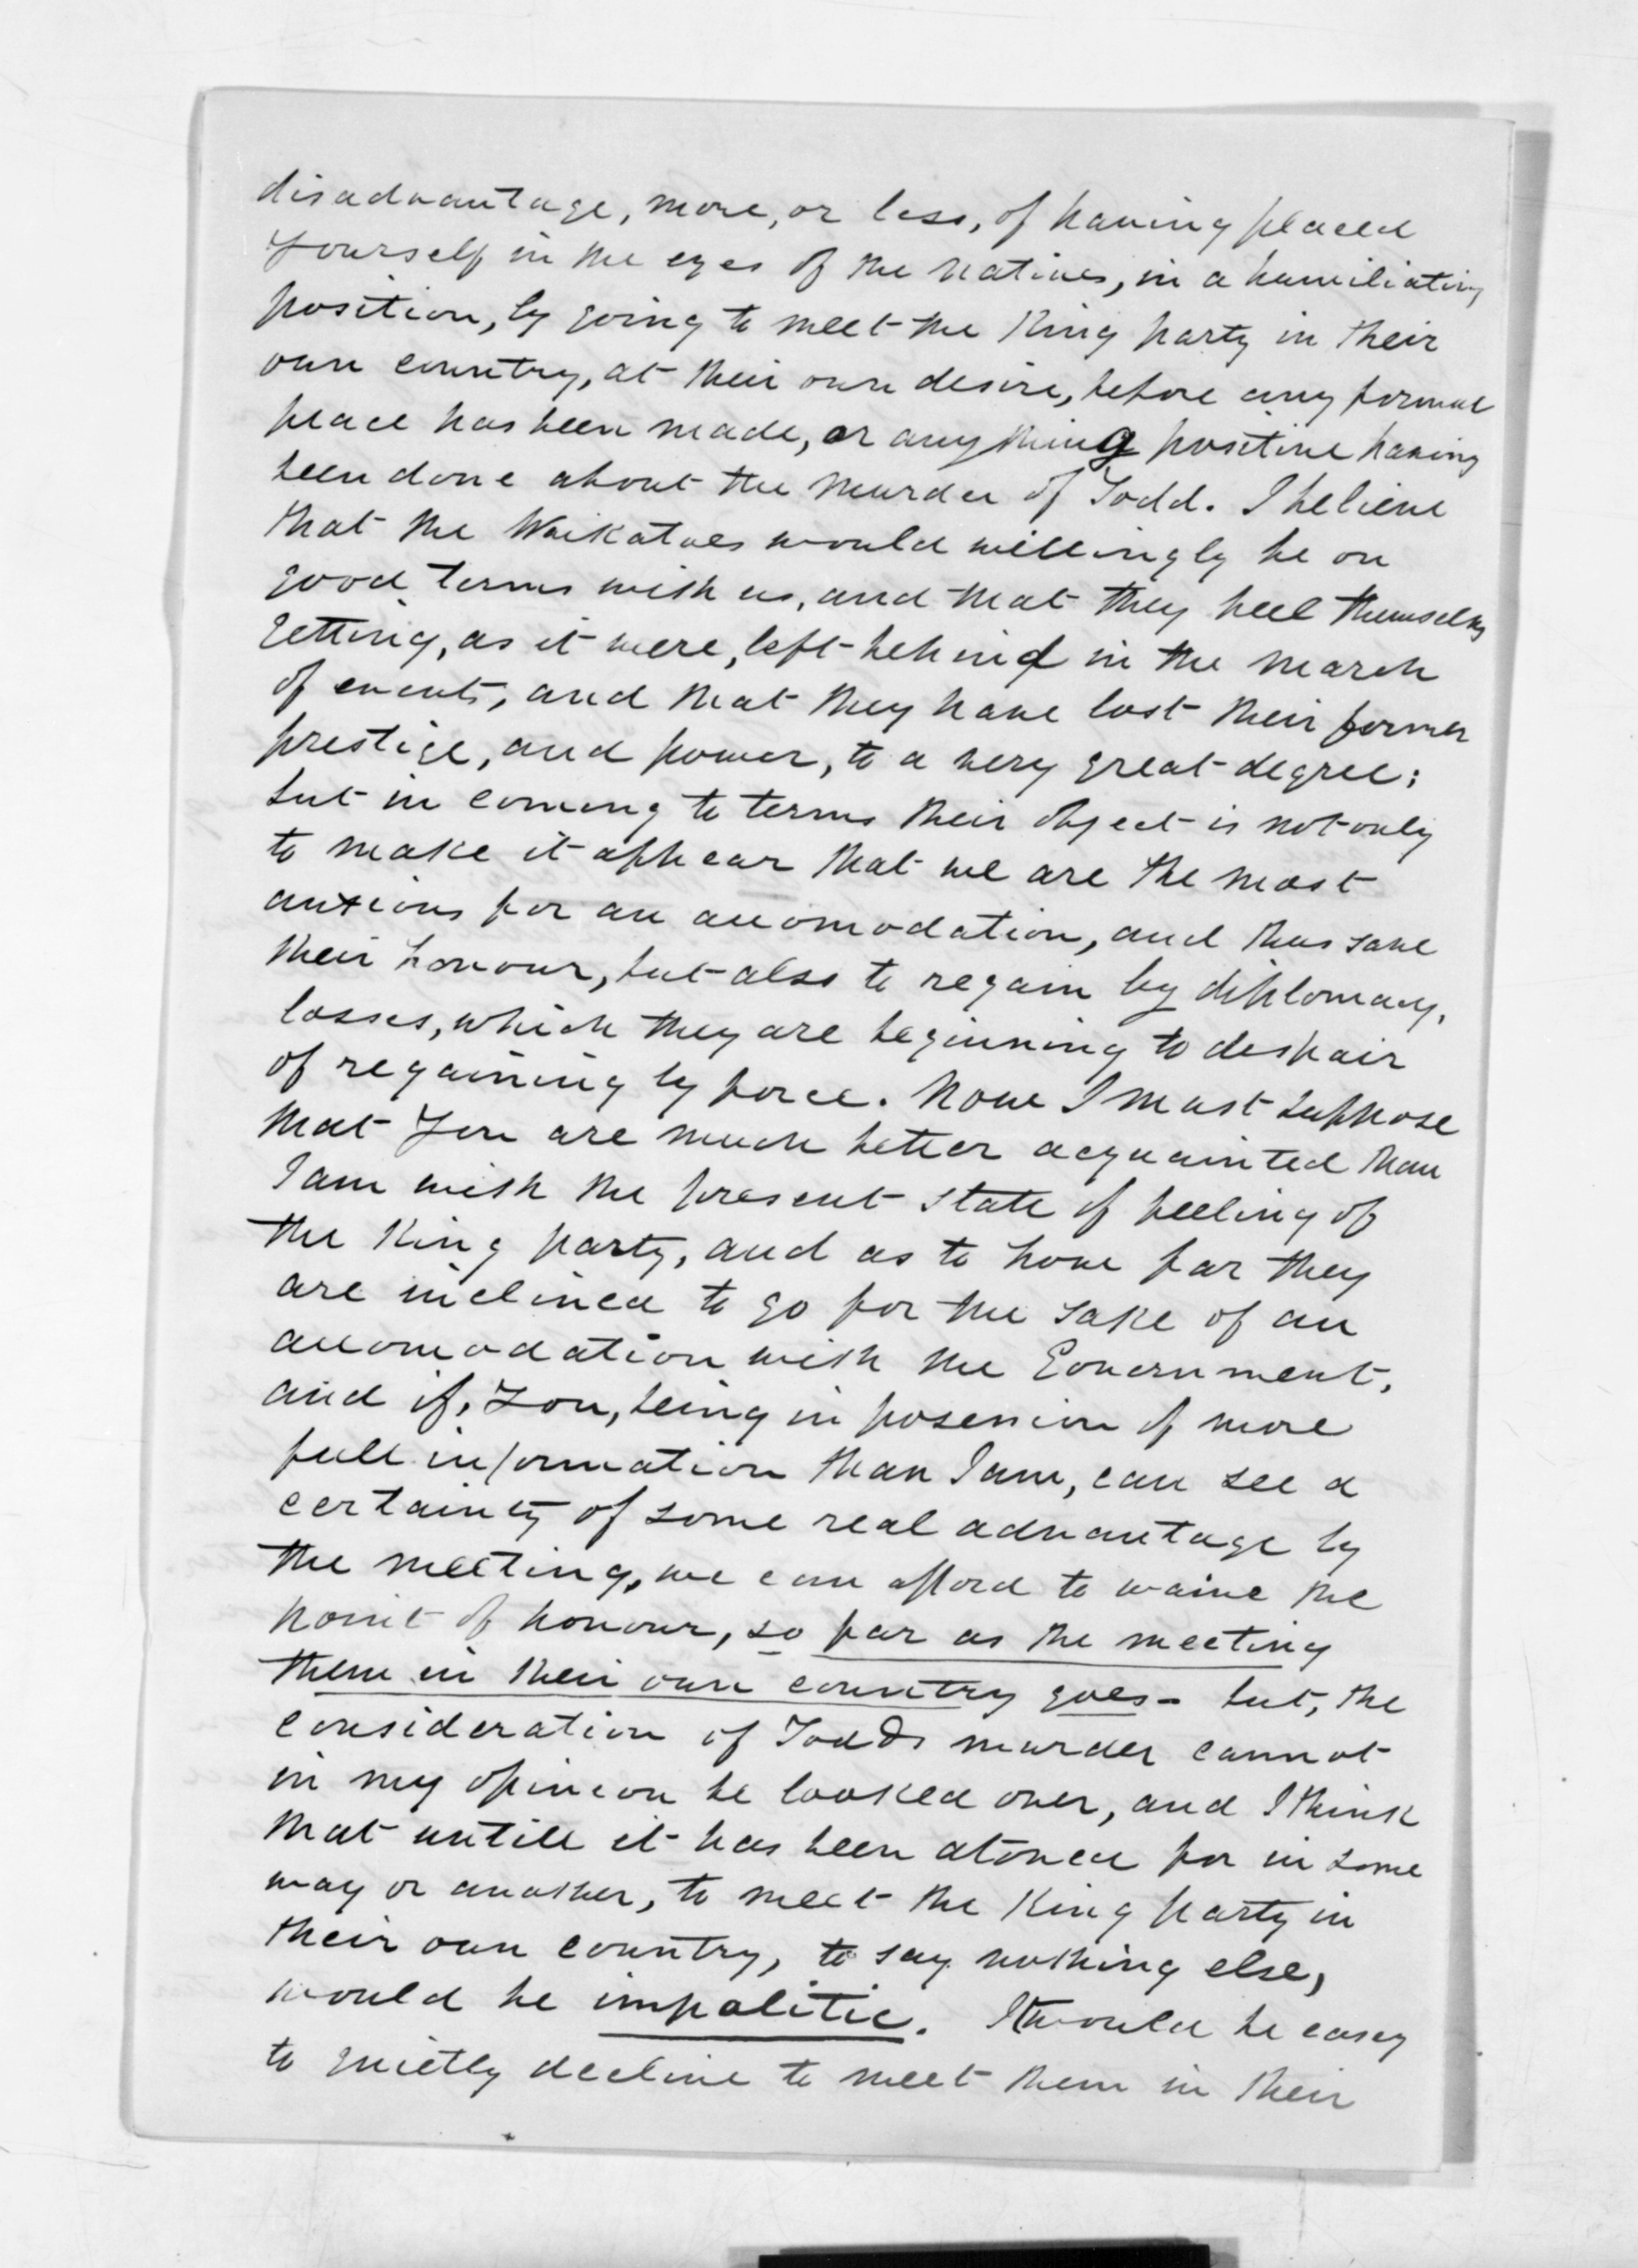 disadvantage, more, or less, of having placed
yourself in the eyes of the natives, in a humiliating
position, by going to meet the King party in their
own country, at their own desire, before any formal
peace has been made, or any thing positive having
been done about the murder of Todd. I believe
that the Waikatoes would willingly be on
good terms with us, and that they feel themselves
getting, as it were, left behind in the march
of events, and that they have lost their former
prestige, and power, to a very great degree;
but in coming to terms their object is not only
to make it appear that we are the most
anxious for an accomodation, and thus save
their honour, but also to regain by diplomacy,
losses, which they are beginning to despair
of regaining by force. Now I must suppose
that you are much better acquainted than
I am with the present state of feeling of
the King party, and as to how far they
are inclined to go for the sake of an
accomodation with the Government,
and if, you, being in posession of more
full information than I am, can see a
certainty of some real advantage by
the meeting, we can afford to waive the
point of honour, so far as the meeting
them in their own country goes - but, the
consideration of Todds murder cannot
in my opinion be looked over, and I think
that untill it has been atoned for in some
way or another, to meet the King party in
their own country, to say nothing else,
would be impolitic. It would be easy
to quietly decline to meet them in their